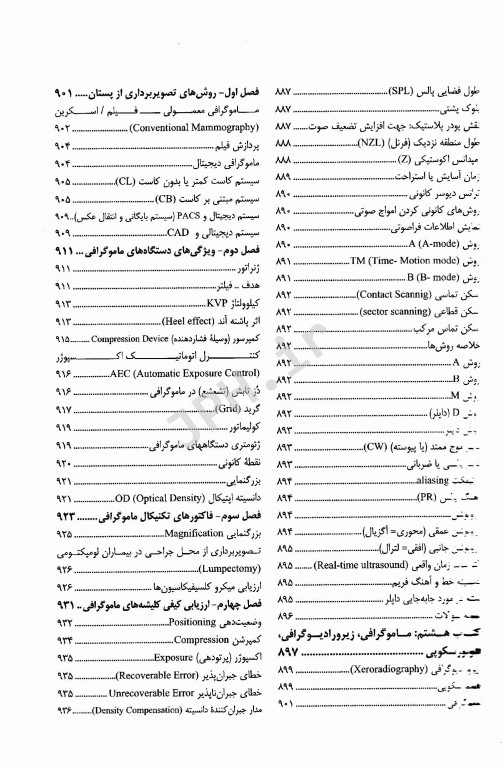 طول فضایی پالس (SPL)..........۸۸۷
بلوک پشتی..........۸۸۷
نقش پودر پلاستیک: جهت افزایش تضعیف صوت.......۸۸۷
طول منطقه نزدیک (فرنل) (NZL)..........۸۸۸
میدانس اکوستیکی (Z)..........۸۸۸
زمان آسایش یا استراحت..........۸۸۹
ترانس دیوسر کانونی..........۸۹۰
روش‌های کانونی کردن امواج صوتی..........۸۹۰
نمایش اطلاعات فراصوتی..........۸۹۰
روش A (A-mode)..........۸۹۰
روش TM (Time- Motion mode)..........۸۹۱
روش B (B- mode)..........۸۹۱
سکن تماسی (Contact Scannig)..........۸۹۲
سکن قطاعی (sector scanning)..........۸۹۲
سکن تماس مرکب..........۸۹۲
خلاصه روش‌ها..........۸۹۲
روش A..........۸۹۲
روش B..........۸۹۲
روش M..........۸۹۲
D (داپلر)..........۸۹۲
..........۸۹۳
موج ممتد (یا پیوسته) (CW)..........۸۹۳
یا ضربانی..........۸۹۳
aliasing..........۸۹۴
(PR)..........۸۹۴
..........۸۹۴
عمقی (محوری= اگزیال)..........۸۹۴
جانبی (افقی= لترال)..........۸۹۵
زمان واقعی (Real-time ultrasound)..........۸۹۵
خط و آهنگ فریم..........۸۹۵
مورد جابه‌جایی داپلر..........۸۹۵
..........۸۹۶
کتاب هشتم: ماموگرافی، زیرورادیوگرافی،
..........۸۹۷
(Xeroradiography)..........۸۹۹
..........۸۹۹
..........۹۰۱
فصل اول- روش‌های تصویربرداری از پستان.....۹۰۱
ماموگرافی معمولی — فیلم / اسکرین
(Conventional Mammography)..........۹۰۲
پردازش فیلم..........۹۰۴
ماموگرافی دیجیتال..........۹۰۴
سیستم کاست کمتر یا بدون کاست (CL)..........۹۰۵
سیستم مبتنی بر کاست (CB)..........۹۰۵
سیستم دیجیتال و PACS (سیستم بایگانی و انتقال عکس)..۹۰۹
سیستم دیجیتالی و CAD..........۹۰۹
فصل دوم- ویژگی‌های دستگاه‌های ماموگرافی...۹۱۱
ژنراتور..........۹۱۱
هدف - فیلتر..........۹۱۱
کیلوولتاژ KVP..........۹۱۳
اثر پاشنه آند (Heel effect)..........۹۱۳
کمپرسور (وسیلهٔ فشاردهنده) Compression Device......۹۱۵
کنترل اتوماتیک اکسپوژر
AEC (Automatic Exposure Control)..........۹۱۶
دُز تابش (تشعشع) در ماموگرافی..........۹۱۶
گرید (Grid)..........۹۱۷
کولیماتور..........۹۱۹
ژئومتری دستگاههای ماموگرافی..........۹۱۹
نقطهٔ کانونی..........۹۲۰
بزرگنمایی..........۹۲۱
دانسیته اپتیکال OD (Optical Density)..........۹۲۱
فصل سوم- فاکتورهای تکنیکال ماموگرافی........۹۲۳
بزرگنمایی Magnification..........۹۲۵
تصویربرداری از محل جراحی در بیماران لومپکتومی
(Lumpectomy)..........۹۲۶
ارزیابی میکرو کلسیفیکاسیون‌ها..........۹۲۶
فصل چهارم- ارزیابی کیفی کلیشه‌های ماموگرافی..۹۳۱
وضعیت‌دهی Positioning..........۹۳۲
کمپرشن Compression..........۹۳۴
اکسپوژر (پرتودهی) Exposure..........۹۳۵
خطای جبران‌پذیر (Recoverable Error)..........۹۳۵
خطای جبران‌ناپذیر Unrecoverable Error..........۹۳۵
مدار جبران‌کنندهٔ دانسیته (Density Compensation)........۹۳۶